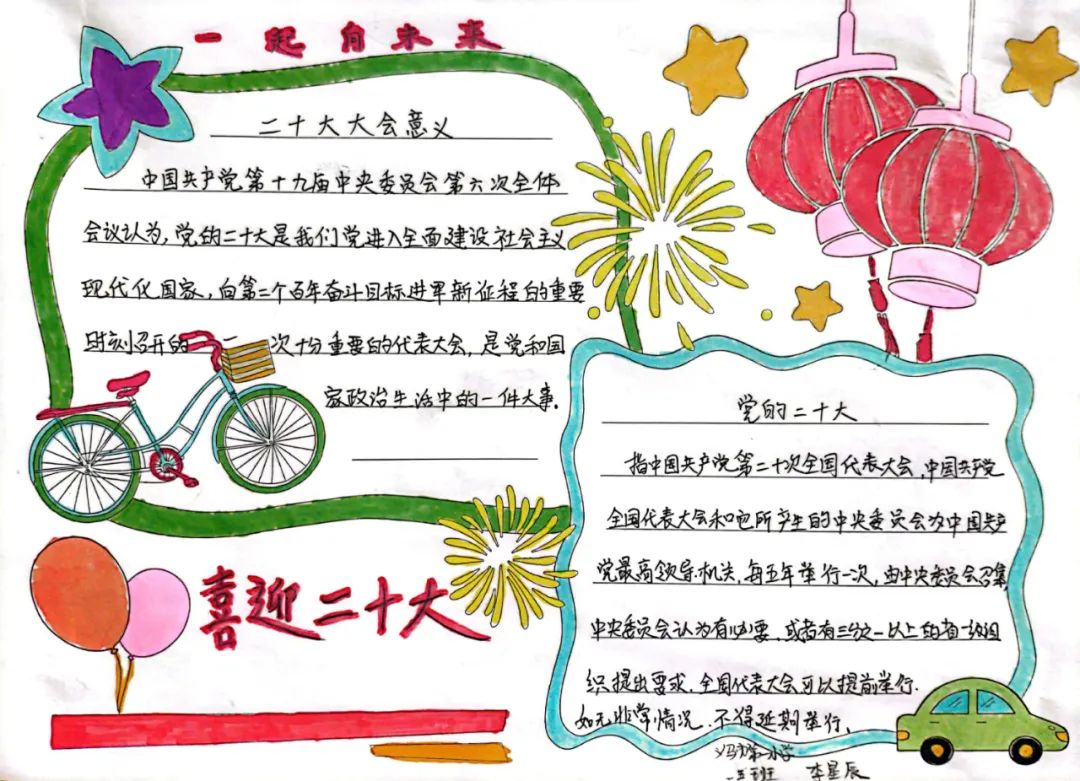 一起向未来
二十大大会意义
中国共产党第十九届中央委员会第六次全体
会议认为,党的二十大是我们党进入全面建设社会主义
现代化国家,向第二个百年奋斗目标进军新征程的重要
时刻召开的一次十分重要的代表大会,是党和国
家政治生活中的一件大事.
喜迎二十大
党的二十大
指中国共产党第二十次全国代表大会,中国共产党
全国代表大会和它所产生的中央委员会为中国共产
党最高领导机关,每五年举行一次,由中央委员会召集,
中央委员会认为有必要,或者有三分一以上的省一级组
织提出要求,全国代表大会可以提前举行.
如无非常情况,不得延期举行.
小学
班 李星辰